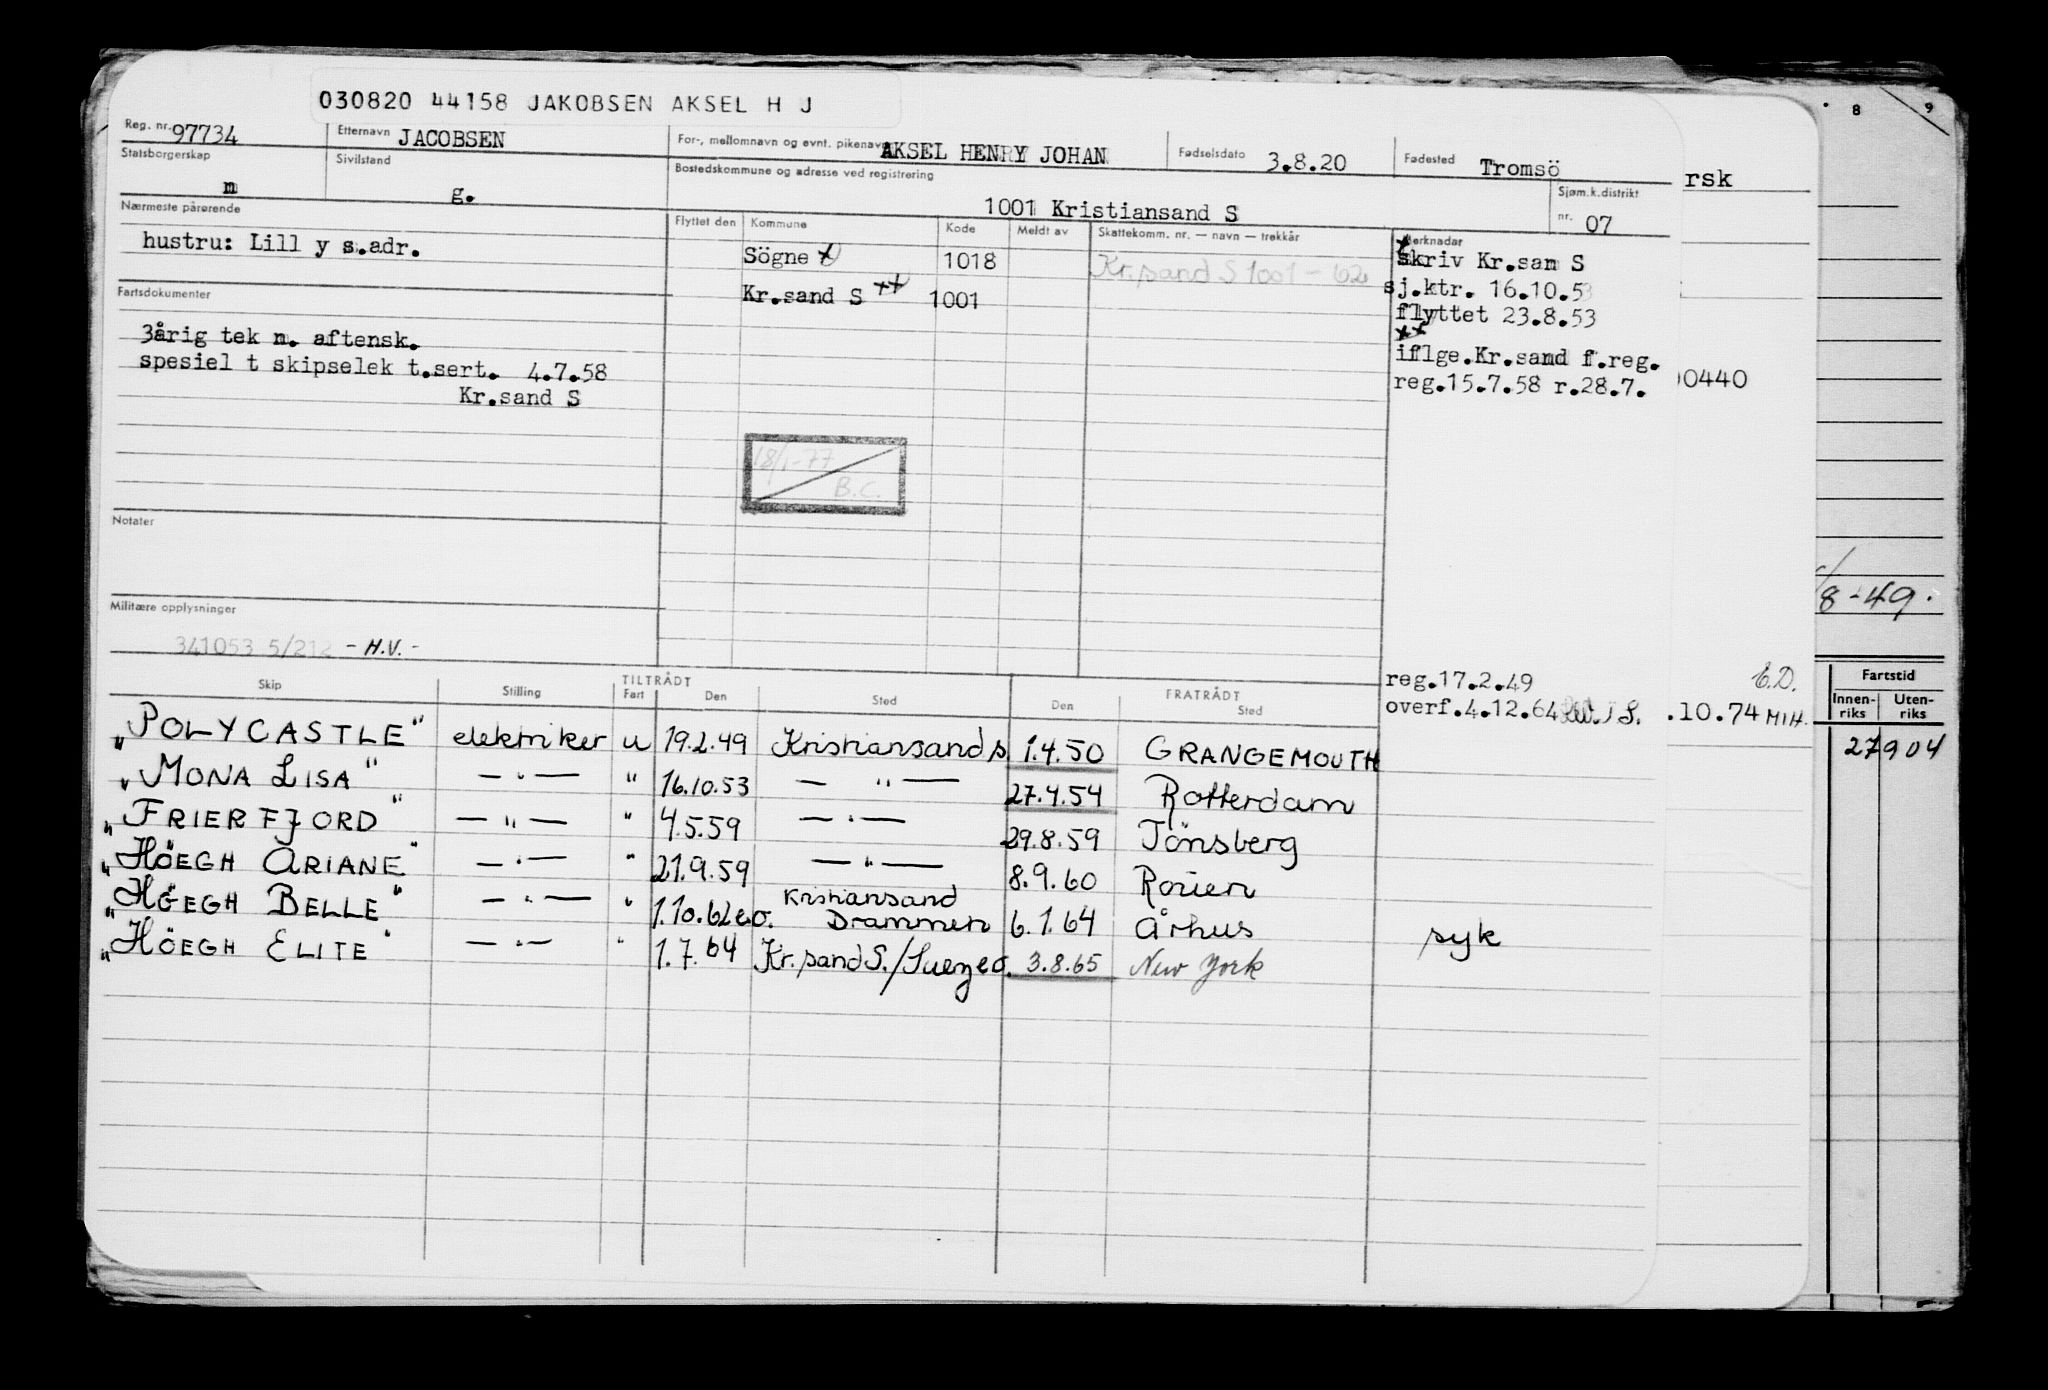 030820 44158 JAKOBSEN AKSEL H J
Reg. nr. 97734 Etternavn JACOBSEN For-, mellomnavn og evnt. pikenavn AKSEL HENRY JOHAN Fødselsdato 3.8.20 Fødested Tromsö
Statsborgerskap n Sivilstand g. Bostedskommune og adresse ved registrering 1001 Kristiansand S Sjøm.k.distrikt nr. 07
rsk
Nærmeste pårørende
hustru: Lill y s.adr.
Flyttet den Kommune Kode Meldt av Skattekomm. nr. — navn — trekkår Merknadar
Sögne x 1018 Kr.sand S 1001 - 62
Kr.sand S xx 1001
x
skriv Kr.san S
sj.ktr. 16.10.53
flyttet 23.8.53
xx
iflge.Kr.sand f.reg.
reg.15.7.58 r.28.7.
00440
Fartsdokumenter
3årig tek n. aftensk.
spesiel t skipselek t.sert. 4.7.58
Kr.sand S
18/1-77
B.C.
Notater
Militære opplysninger
341053 5/212 - H.V. -
reg.17.2.49
overf.4.12.64
.10.74 MIH.
E.D.
8 9
/8-49.
Fartstid
Innen-riks Uten-riks
27904
TILTRÅDT FRATRÅDT
Skip Stilling Fart Den Sted Den Sted
"POLYCASTLE" elektriker u 19.2.49 Kristiansand s 1.4.50 GRANGEMOUTH
"MONA LISA" — " — " 16.10.53 — " — 27.4.54 Rotterdam
"FRIERFJORD" — " — " 4.5.59 — " — 29.8.59 Tönsberg
"HÖEGH ARIANE" — " — " 21.9.59 — " — 8.9.60 Rouen
"HÖEGH BELLE" — " — " 1.10.62 e.o. Kristiansand Drammen 6.1.64 Århus syk
"HÖEGH ELITE" — " — " 1.7.64 Kr.sand S./Suez e.o. 3.8.65 New York